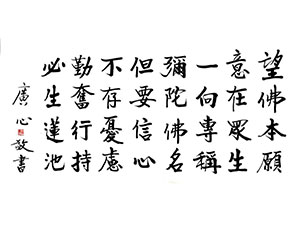 望佛本願
意在眾生
一向專稱
彌陀佛名
但要信心
不存憂慮
勤奮行持
必生蓮池
廣心敬書